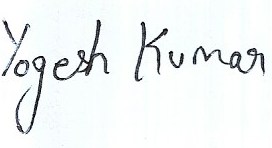 Yogesh Kumar